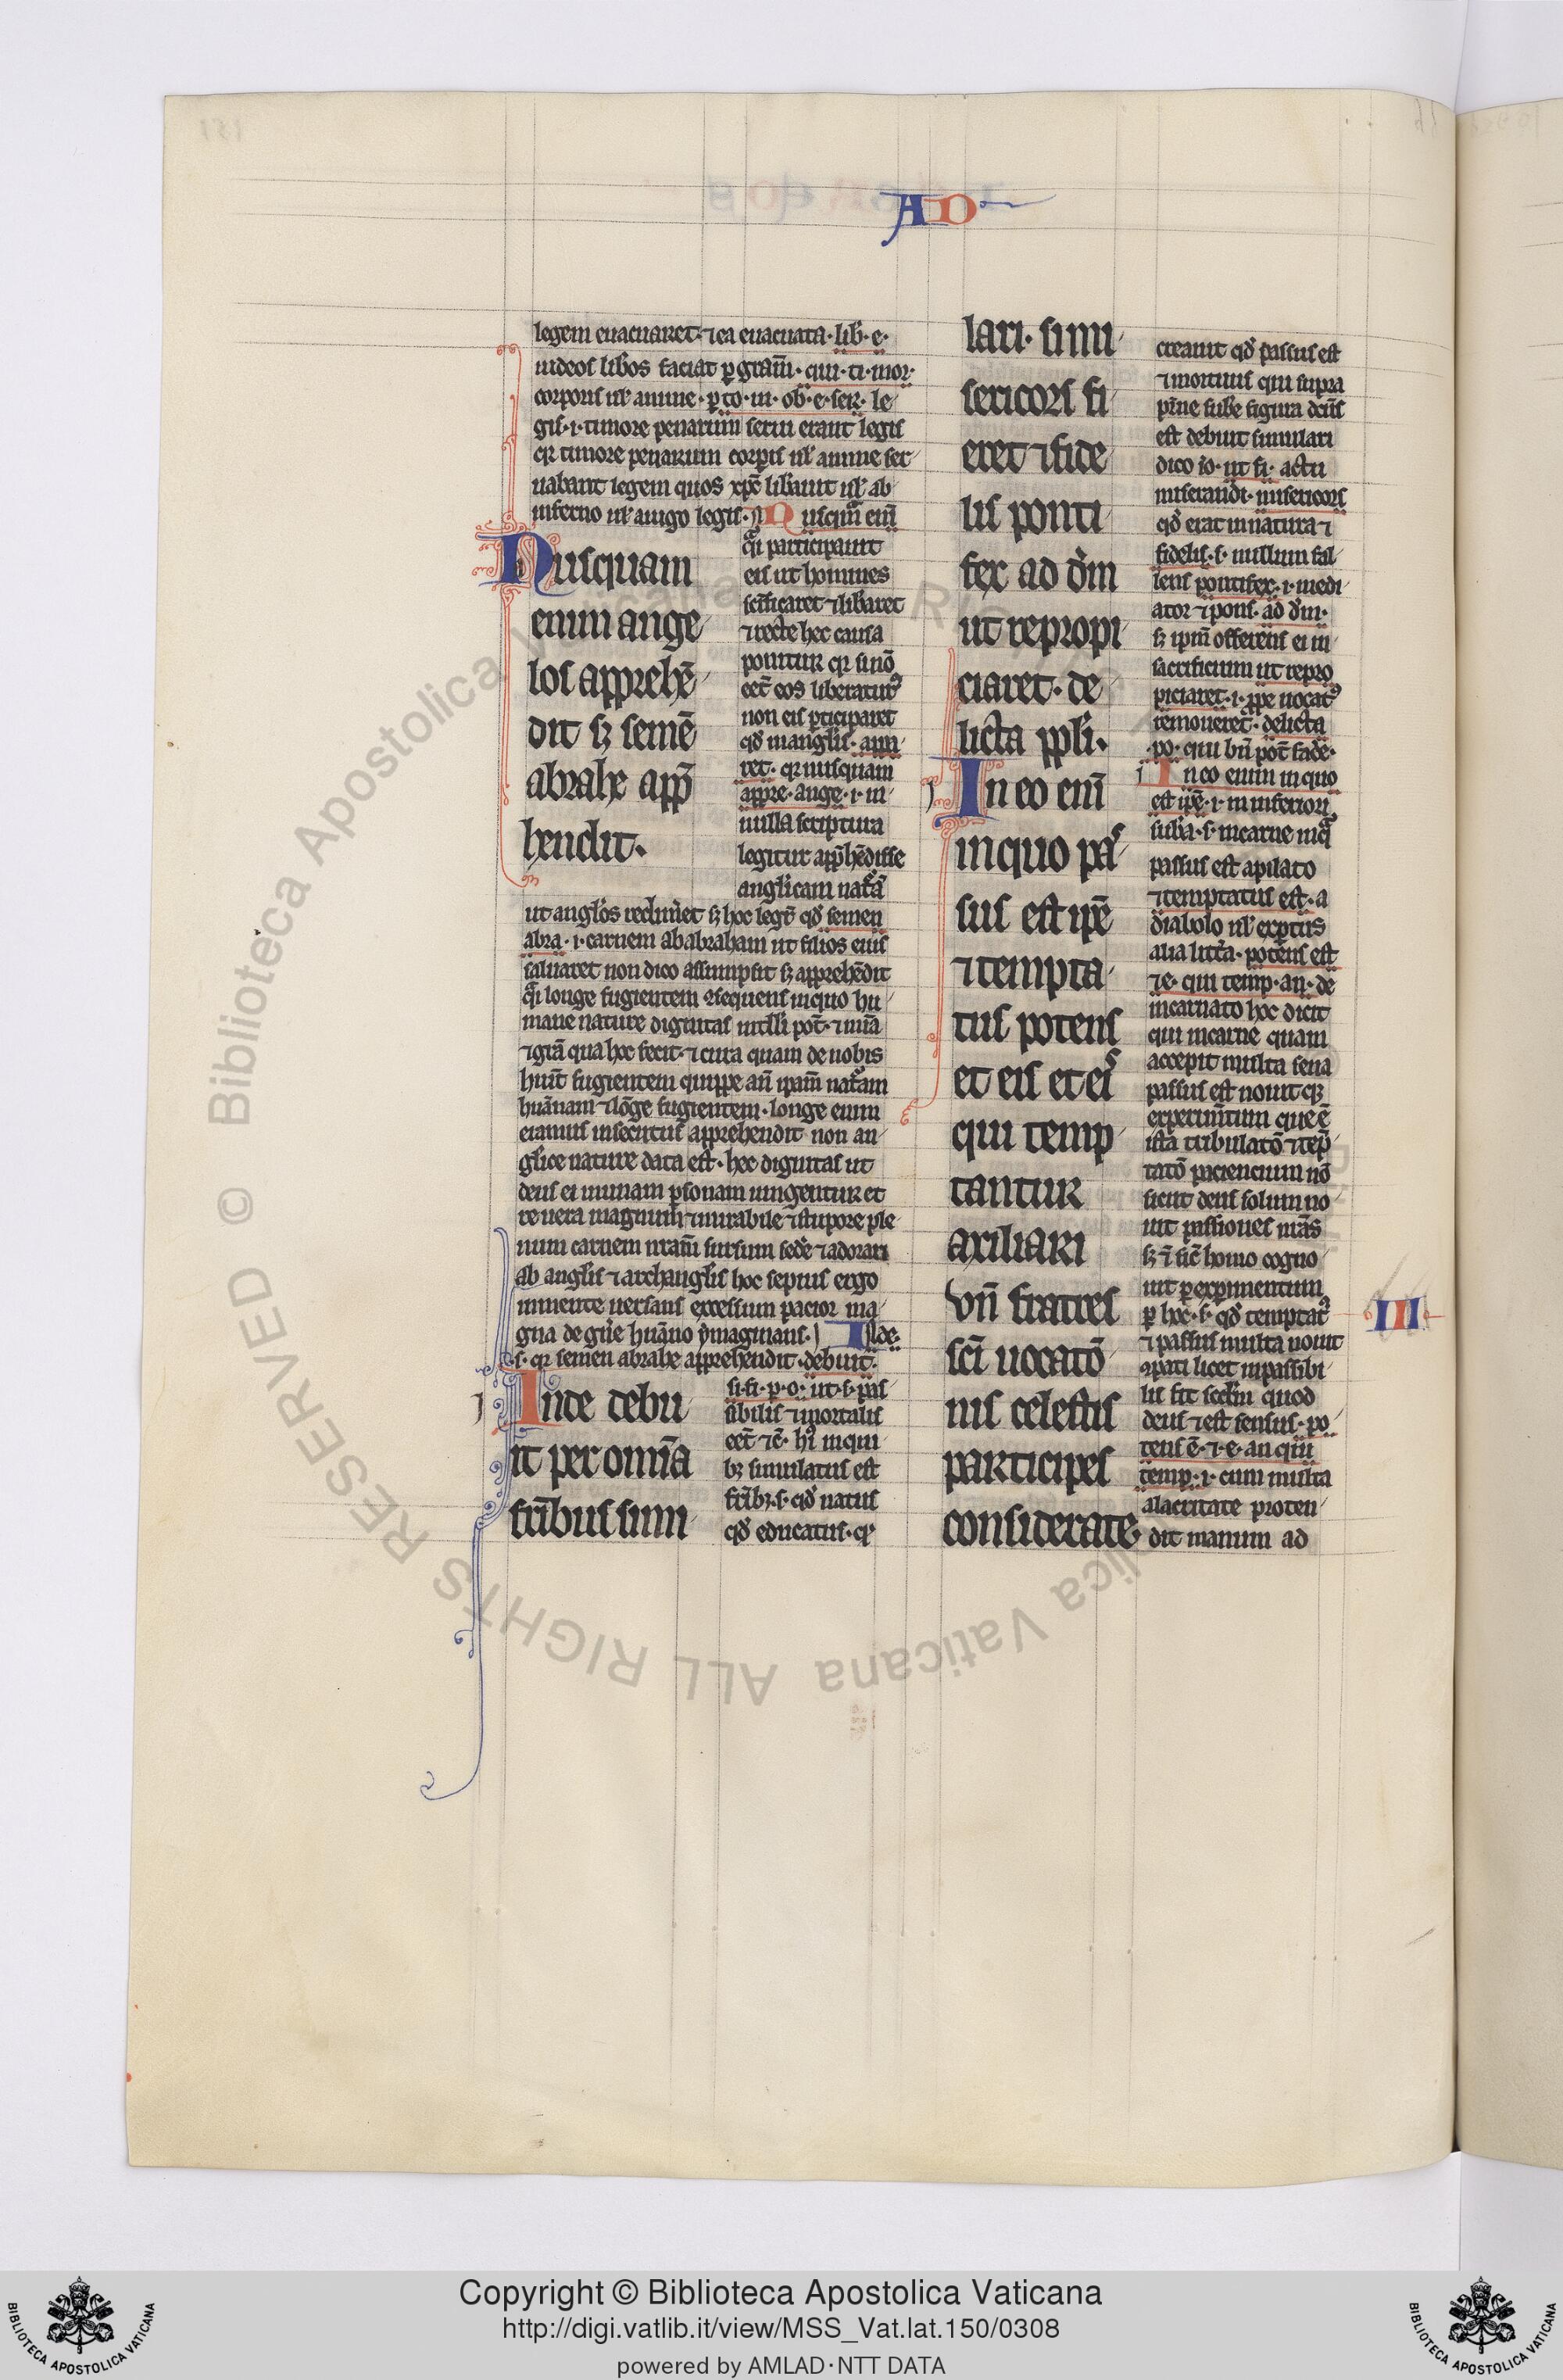 AD
legem euacuaret· ⁊ ea euacuata· lib̅· e·
iudeos lib̅os faciat ꝑ gr̅am̅· qui· ti· mor·
corporis ul̅ anime· ꝑ to· ui· ob· e· ser· le
gis· i· timore penarum serui erant legis
qꝛ timore penarum corꝑis ul̅ anime ser
uabant legem quos xp̅c lib̅auit ul̅ ab
inferno ul̅ a iugo legis· Nusq̅m eni̅
Nusquam
enim ange
los apprehe̅
dit sꝫ seme̅
abrahe app̅
hendit·
q̅i participauit
eis ut homines
sc̅ificaret ⁊ lib̅aret
⁊ recte hec causa
ponitur qꝛ si no̅
eet̅ eos liberatur᷒
non eis ꝑticiparet
qd̅ in angl̅is· ap̅p̅
ret· qꝛ nusquam
appre· ange· i· in
nulla scriptura
legitur app̅he̅disse
anglicam nat̅a̅
ut angl̅os redim̅et sꝫ hoc legr̅ qd̅ semen
abra· i· carnem ab abraham ut filios eius
saluaret non dico assumpsit sꝫ apprehe̅dit
q̅i longe fugientem ꝯsequens in quo hu
mane nature dignitas intll̅i pot̅· ⁊ mi̅a
⁊ gr̅a qua hec fecit· ⁊ cura quam de nobis
huit̅ fugientem quippe an̅ ipam̅ nat̅am
hu̅anam ⁊ lo̅ge fugientem· longe enim
eramus insecutus apprehendit non an
glice nature data est· hec dignitas ut
deus ei in unam ꝑsonam iungeretur et
re uera magnum ⁊ mirabile ⁊ stupore ple
num carnem nr̅am̅ sursum sede̅ ⁊ adorari
ab angl̅is ⁊ archangl̅is hoc sepius ergo
in mente uersans excessum pacior ma
gna de gn̅e hu̅ano ymaginans· Un̅de·
s· qꝛ semen abrahe apprehendit· debuit·
Unde debu
it per om̅ia
fr̅ibus simi
si· fi· ꝑ· o· ut· s· pas
sibilis ⁊ mortalis
eet̅ ⁊ c̅· hi̅ in qui
bꝫ similatus est
fr̅ibꝫ· s· qd̅ natus
qd̅ educatus· qꝛ
lari· ut mi
sericors fi
eret ⁊ fide
lis ponti
fex ad d̅m
ut repropi
ciaret· de
licta pp̅li·
In eo eni̅
in quo pas
sus est ip̅e
⁊ tempta
tus potens
est eis et eis
qui temp
tantur
axiliari
Vn̅ fratres
sc̅i uocato̅
nis celestis
participes
considerate
creauit qd̅ passus est
⁊ mortuus qui supra
pr̅ne sub̅e figura dc̅us
est debuit simulari
dico io̅· ut fi· actu
miserandi· misericors
qd̅ erat in natura ⁊
fidelis· s· nullum fal
lens pontifex· i· medi
ator ⁊ pons· ad d̅m·
sꝫ ipm̅ offerens ei in
sacrificium ut repro
piciaret· i· ꝓpe uocat᷒
remoueret· delicta
po· qui bn̅ pot̅ fac̅e·
In eo enim in quo
est ip̅e· i· in inferiori
sub̅a· s· in carne in q̅
passus est a pilato
⁊ temptatus est· a
diabolo ul̅ exꝑtus
alia litt̅a· potens est
⁊ e· qui temp· au· de
incarnato hoc dicit
qui in carne quam
accepit multa seua
passus est nouit qꝛ
experim̅tum que e̅
ista tribulato̅ ⁊ te̅p
tato̅ paciencium no̅
sicut deus solum no
uit passiones n̅ras
sꝫ ⁊ sic̅ homo cogno
uit ꝑ exꝑimentum
ꝑ hoc· s· qd̅ temptat᷒
⁊ passus multa nouit
ꝯpati licet inpassibi
lis sit sc̅dm quod
deus ⁊ est sensus· po
tens e̅· ⁊· e· au qui
temp· i· cum multa
alacritate proten
dit manum ad
III
Copyright © Biblioteca Apostolica Vaticana
http://digi.vatlib.it/view/MSS_Vat.lat.150/0308
powered by AMLAD·NTT DATA